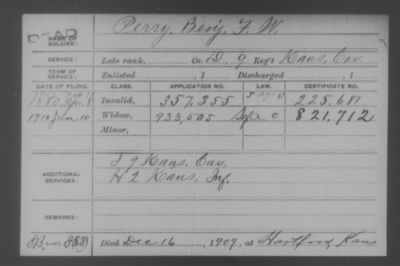 DEAD
NAME OF SOLDIER: Perry, Benj. F. W.
SERVICE: Late rank, Co. D, 9 Reg't Kans. Cav.
TERM OF SERVICE: Enlisted , 1 Discharged , 1
DATE OF FILING. CLASS. APPLICATION NO. LAW. CERTIFICATE NO.
1880, Apr. 8 Invalid, 357,355 225,681
1910 Jan 10 Widow, 933,505 821,712
Minor,
ADDITIONAL SERVICES: I 9 Kans. Cav.
H 2 Kans. Inf.
REMARKS:
Died Dec 16, 1909, at Hartford Kans